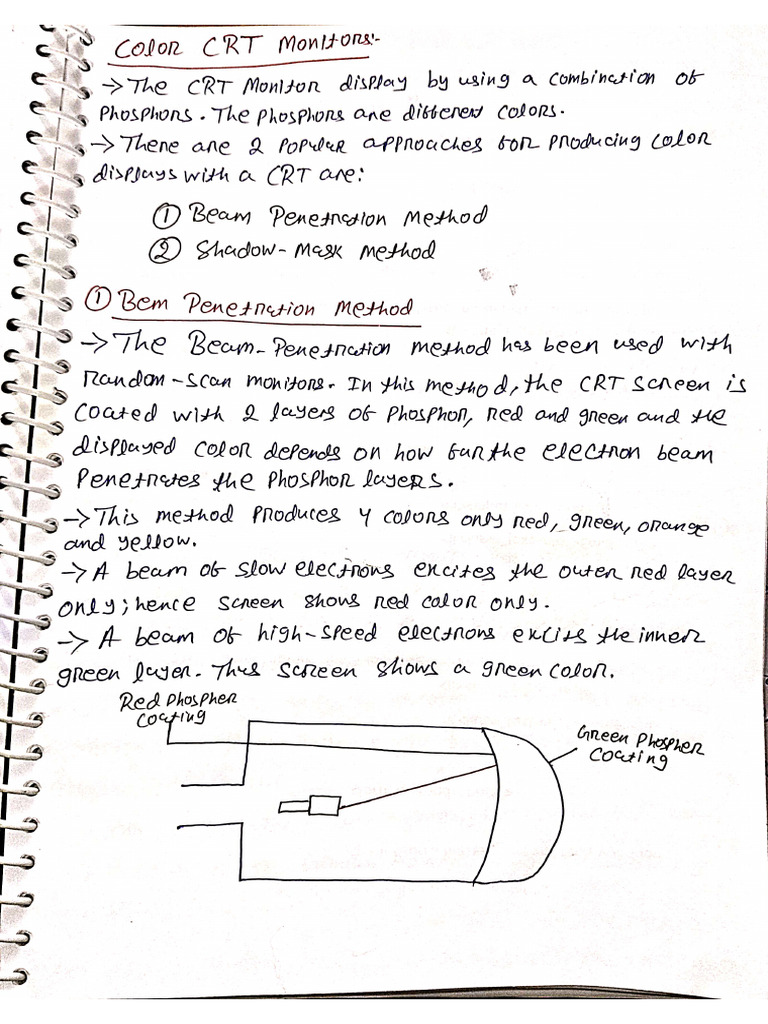 Color CRT Monitors:-
→ The CRT Monitor display by using a combination of
Phosphors. The phosphors are different colors.
→ There are 2 popular approaches for producing color
displays with a CRT are:
① Beam Penetration Method
② Shadow-Mask Method
① Bem Penetration Method
→ The Beam-Penetration method has been used with
random-scan monitors. In this method, the CRT screen is
coated with 2 layers of phosphor, red and green and the
displayed color depends on how far the electron beam
penetrates the phosphor layers.
→ This method produces 4 colors only red, green, orange
and yellow.
→ A beam of slow electrons excites the outer red layer
only; hence screen shows red color only.
→ A beam of high-speed electrons excits the inner
green layer. Thus screen shows a green color.
Red Phospher
Coating
Green Phospher
Coating